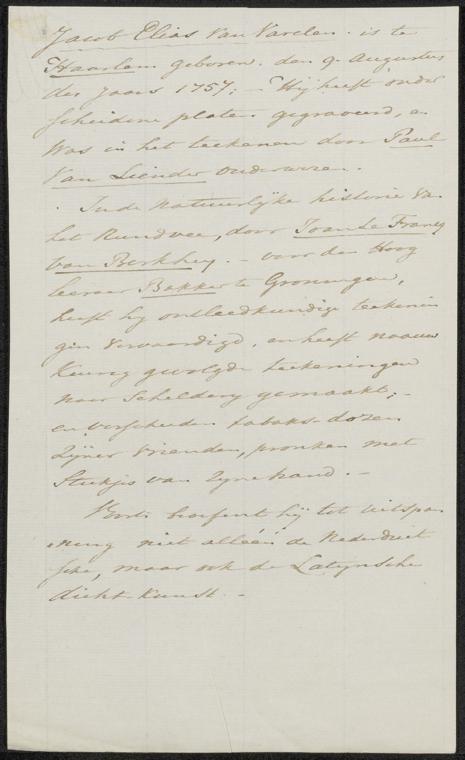 Jacob Elias Van Varelen. is te
Haarlem geboren. den 9. Augustus
des Jaars 1757; – Hij heeft onder
scheidene platen gegraveerd, en
was in het teekenen door Paul
Van Liender onderwezen.
In de natuurlyke historie van
het Rundvee, door Joan Le Francq
van Berkhey. – voor den Hoog
leeraar Bakker te Groningen,
heeft hy ontleedkundige teekenin
gen vervaardigd, en heeft naauw
keurig gevolgde teekeningen
naar Schildery gemaakt; –
en verscheiden tabaks-dozen
Zijner Vrienden, pronken met
Stukjes van Zyne hand. –
Voorts hij tot uitspan
ning niet alléén de Nederduit
sche, maar ook de Latynsche
dicht-kunst. –